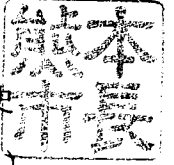 熊本
市長